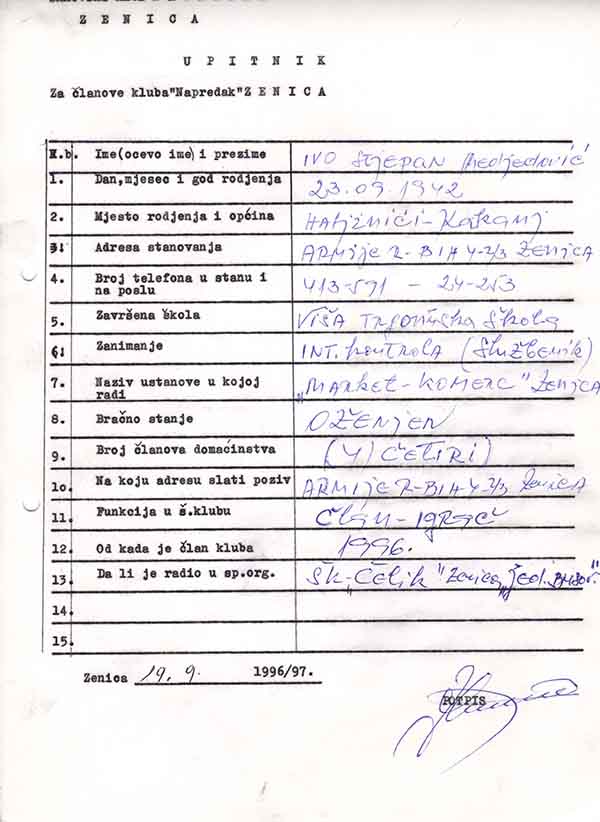 Z E N I C A
U P I T N I K
Za članove kluba"Napredak"Z E N I C A
R.b. Ime(ocevo ime) i prezime IVO Stjepan Medjedović
1. Dan,mjesec i god rodjenja 23.09.1942
2. Mjesto rodjenja i općina HAtjžnići-Kakanj
3. Adresa stanovanja ARMije R-BIH 4-2/3 ZENJCA
4. Broj telefona u stanu i
na poslu 413-591 - 24-253
5. Završena škola Viša Trgovinska škola
6. Zanimanje INT. kontrola (Službenik)
7. Naziv ustanove u kojoj
radi „MARKET-KOMERC" Zenjca
8. Bračno stanje OŽENJEN
9. Broj članova domaćinstva (4) ČETIRI)
10. Na koju adresu slati poziv ARMije R-BIH 4-2/3 Zenica
11. Funkcija u š.klubu Član-igrač
12. Od kada je član kluba 1996.
13. Da li je radio u sp.org. ŠK-„Čelik" Zenica,
14.
15.
Zenica 19. 9. 1996/97.
POTPIS